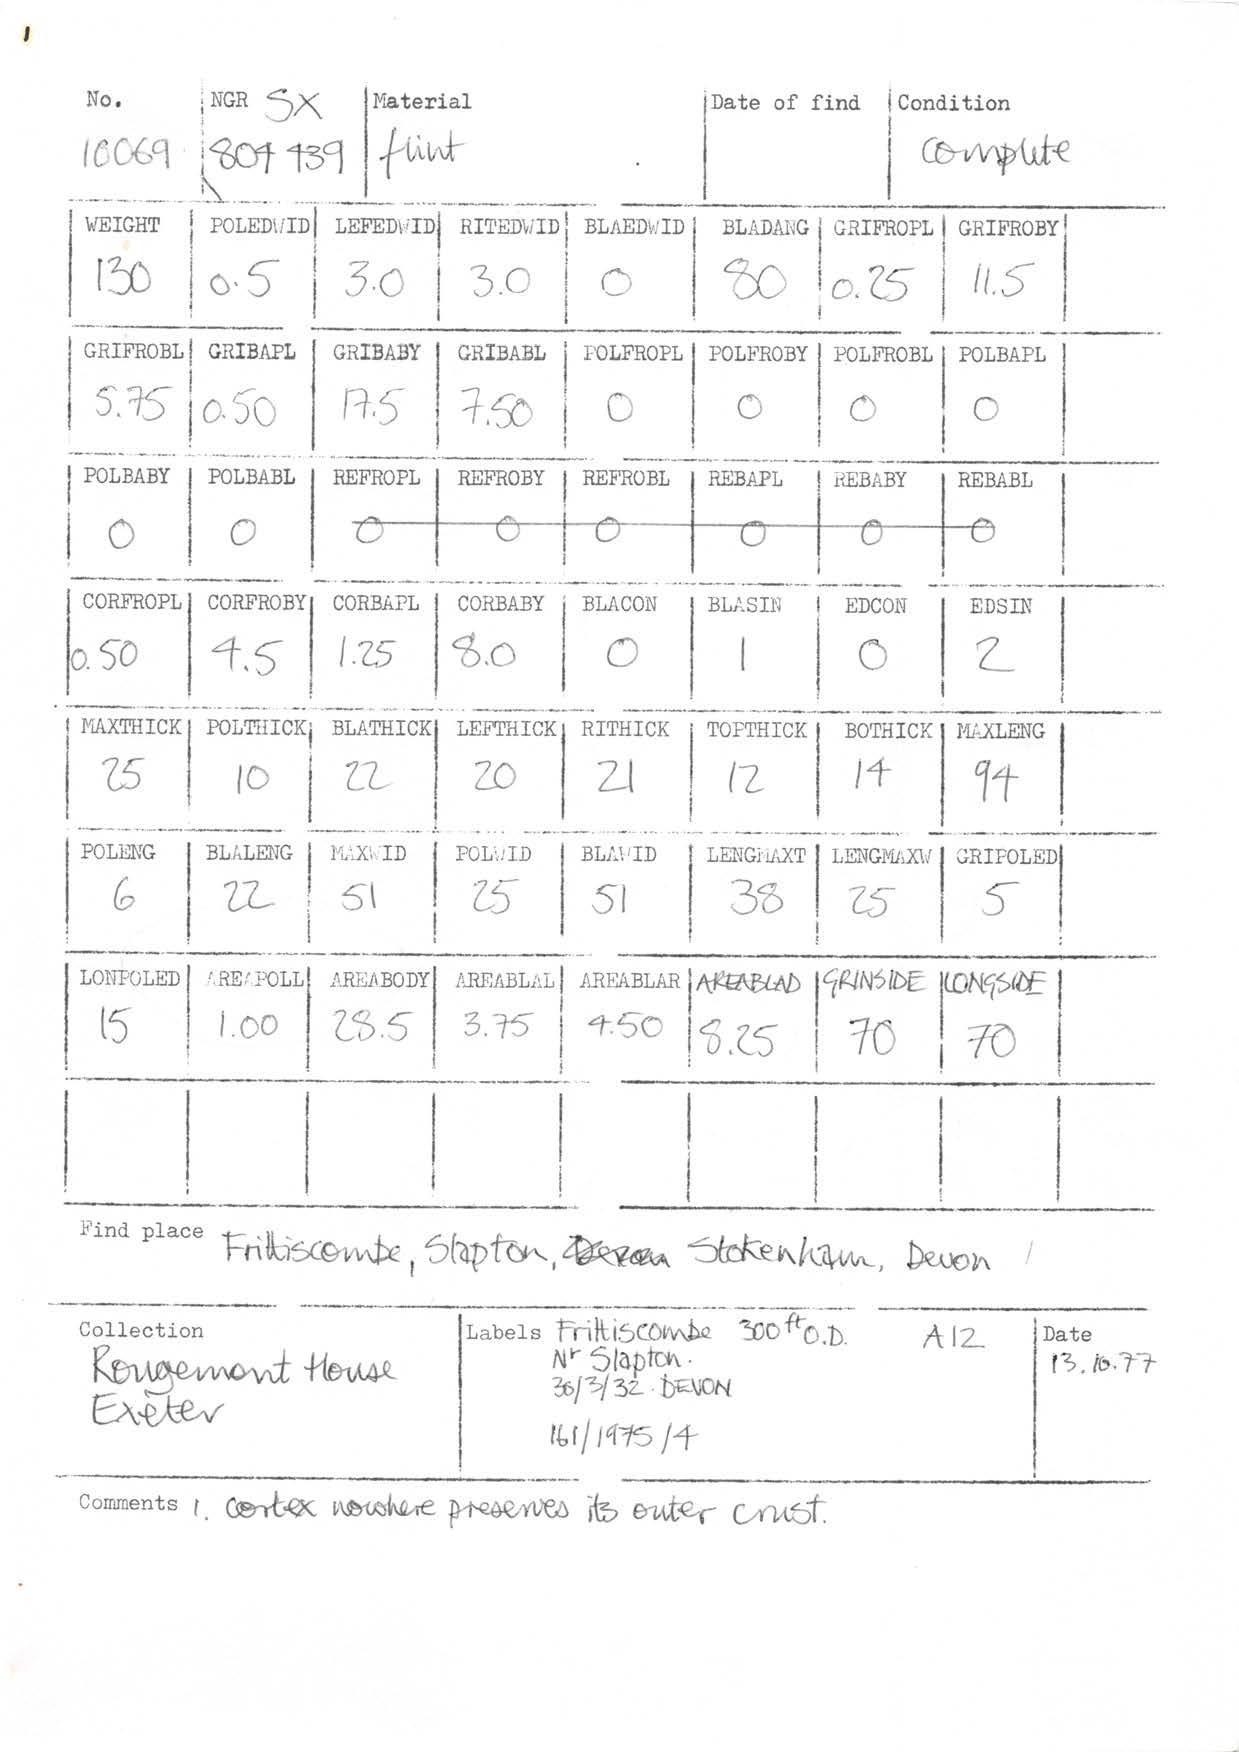 1
No. NGR SX Material Date of find Condition
10069 804 439 flint complete
WEIGHT POLEDWID LEFEDWID RITEDWID BLAEDWID BLADANG GRIFROPL GRIFROBY
130 0.5 3.0 3.0 0 80 0.25 11.5
GRIFROBL GRIBAPL GRIBABY GRIBABL POLFROPL POLFROBY POLFROBL POLBAPL
5.75 0.50 17.5 7.50 0 0 0 0
POLBABY POLBABL REFROPL REFROBY REFROBL REBAPL REBABY REBABL
0 0 0 0 0 0 0 0
CORFROPL CORFROBY CORBAPL CORBABY BLACON BLASIN EDCON EDSIN
0.50 4.5 1.25 8.0 0 1 0 2
MAXTHICK POLTHICK BLATHICK LEFTHICK RITHICK TOPTHICK BOTHICK MAXLENG
25 10 22 20 21 12 14 94
POLENG BLALENG MAXWID POLWID BLAWID LENGMAXT LENGMAXW GRIPOLED
6 22 51 25 51 38 25 5
LONPOLED AREAPOLL AREABODY AREABLAL AREABLAR AREABLAD GRINSIDE LONGSIDE
15 1.00 28.5 3.75 4.50 8.25 70 70
Find place Frittiscombe, Slapton, Devon Stokenham, Devon
Collection Labels Frittiscombe 300 ft O.D. A12 Date
Rougemont House Nr Slapton. 13.10.77
Exeter 30/3/32. DEVON
161/1975/4
Comments 1. cortex nowhere preserves its outer crust.